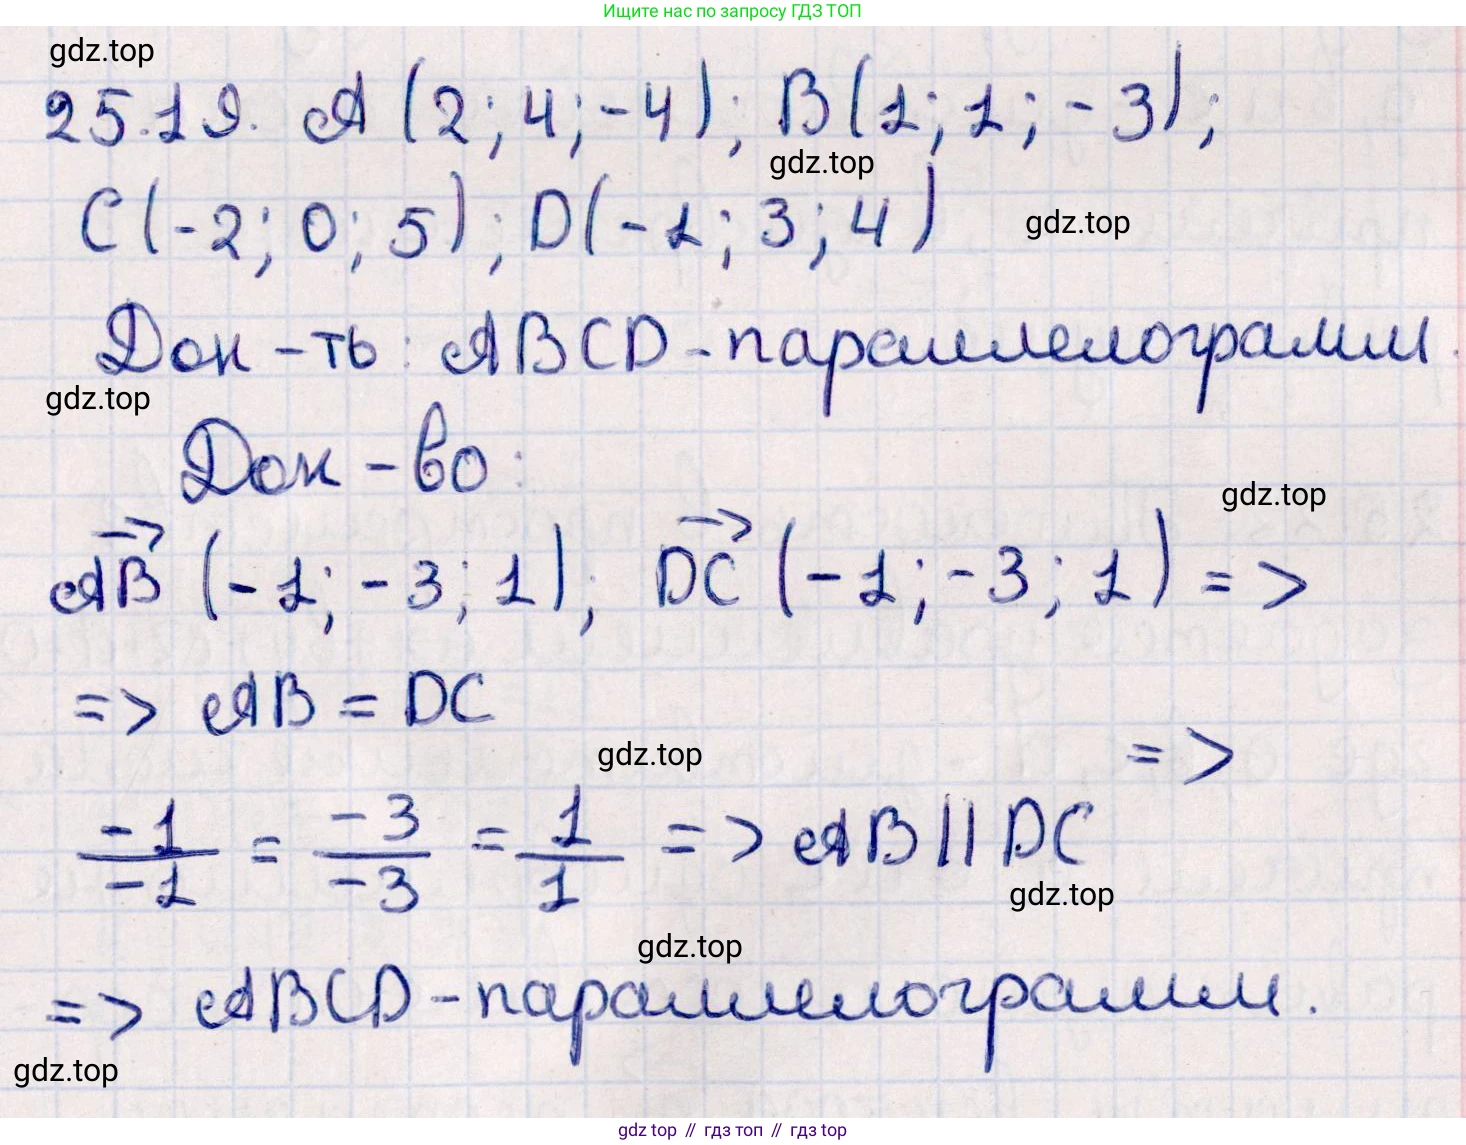 Ищите нас по запросу ГДЗ ТОП
gdz.top
25.19. A (2; 4; -4); B(1; 1; -3);
gdz.top
C(-2; 0; 5); D(-1; 3; 4)
gdz.top
Док-ть: ABCD - параллелограмм.
gdz.top
Док-во:
gdz.top
AB (-1; -3; 1); DC (-1; -3; 1) =>
=> AB = DC
gdz.top
=>
-1/-1 = -3/-3 = 1/1 => AB || DC
gdz.top
gdz.top
=> ABCD - параллелограмм.
gdz.top
gdz top // гдз топ // гдз top